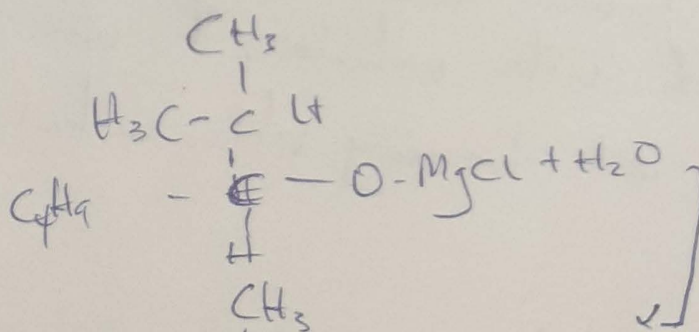 CH3
H3C - C H
C4H9 - C - O - MgCl + H2O
H
CH3